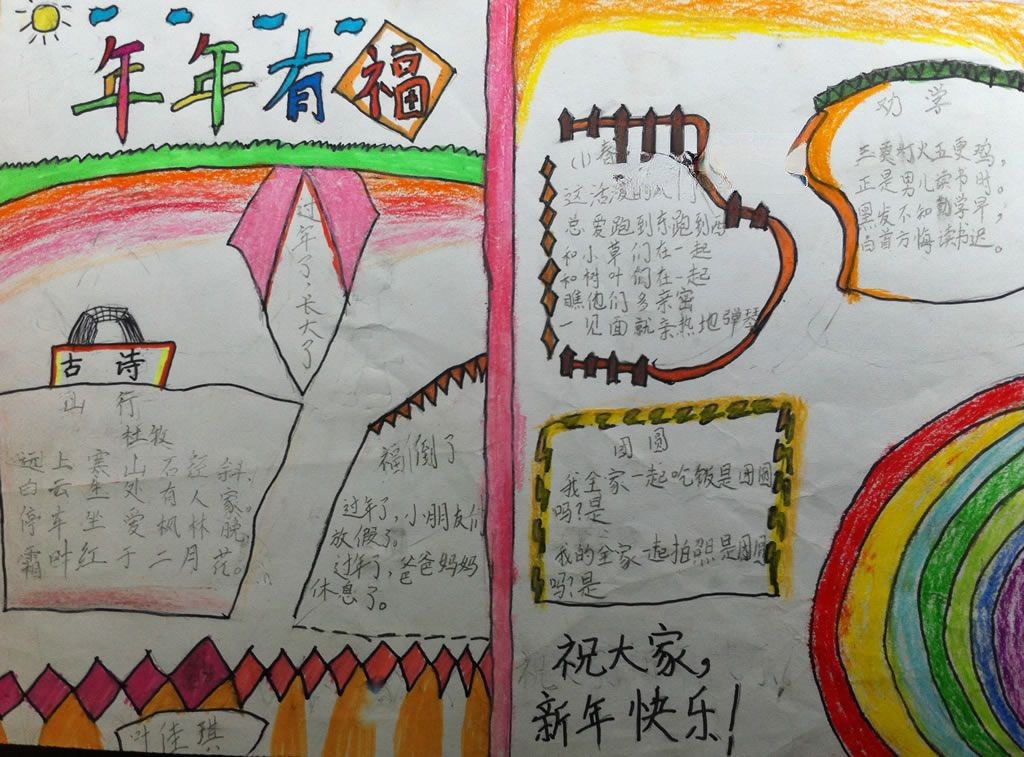 年年有福
过年了，长大了
古诗
山行
杜牧
远上寒山石径斜，
白云生处有人家。
停车坐爱枫林晚，
霜叶红于二月花。
福倒了
过年了，小朋友们
放假了。
过年了，爸爸妈妈
休息了。
叶佳琪
(1)春
这活泼的 们
总爱跑到东跑到西
和小草们在一起
和树叶们在一起
瞧他们多亲密
一见面就亲热地弹琴
劝学
三更灯火五更鸡，
正是男儿读书时。
黑发不知勤学早，
白首方悔读书迟。
团圆
我全家一起吃饭是团圆
吗?是
我的全家一起拍照是团圆
吗?是
祝大家，
新年快乐！